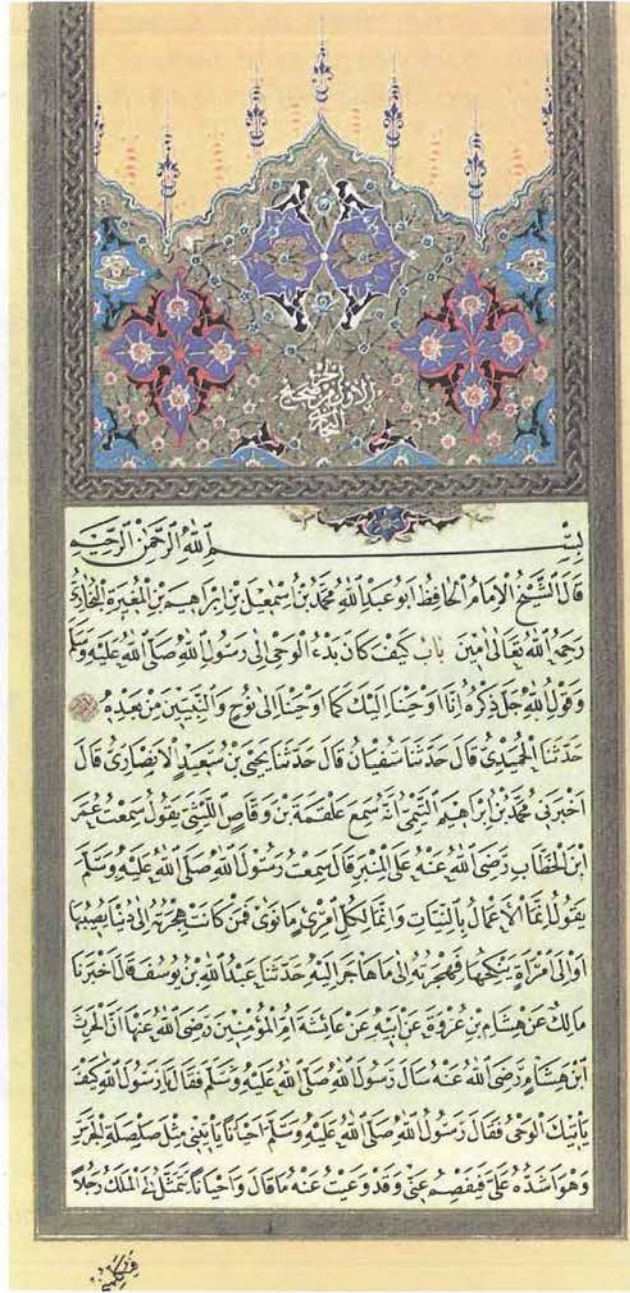 الجزء
الاول من صحيح
البخاري
بِسْمِ اللهِ الرَّحْمٰنِ الرَّحِيْمِ
قَالَ الشَّيْخُ الْاِمَامُ الْحَافِظُ اَبُو عَبْدِ اللهِ مُحَمَّدُ بْنُ اِسْمٰعِيْلَ بْنِ اِبْرَاهِيْمَ بْنِ الْمُغِيْرَةِ الْبُخَارِيُّ
رَحِمَهُ اللهُ تَعَالٰى اٰمِيْنَ بَابُ كَيْفَ كَانَ بَدْءُ الْوَحْىِ اِلٰى رَسُوْلِ اللهِ صَلَّى اللهُ عَلَيْهِ وَسَلَّمَ
وَقَوْلُ اللهِ جَلَّ ذِكْرُهُ اِنَّا اَوْحَيْنَا اِلَيْكَ كَمَا اَوْحَيْنَا اِلٰى نُوْحٍ وَالنَّبِيِّيْنَ مِنْ بَعْدِهٖ
حَدَّثَنَا الْحُمَيْدِىُّ قَالَ حَدَّثَنَا سُفْيَانُ قَالَ حَدَّثَنَا يَحْيَى بْنُ سَعِيْدٍ الْاَنْصَارِىُّ قَالَ
اَخْبَرَنِى مُحَمَّدُ بْنُ اِبْرَاهِيْمَ التَّيْمِىُّ اَنَّهُ سَمِعَ عَلْقَمَةَ بْنَ وَقَّاصٍ اللَّيْثِىَّ يَقُوْلُ سَمِعْتُ عُمَرَ
ابْنَ الْخَطَّابِ رَضِىَ اللهُ عَنْهُ عَلَى الْمِنْبَرِ قَالَ سَمِعْتُ رَسُوْلَ اللهِ صَلَّى اللهُ عَلَيْهِ وَسَلَّمَ
يَقُوْلُ اِنَّمَا الْاَعْمَالُ بِالنِّيَّاتِ وَاِنَّمَا لِكُلِّ امْرِئٍ مَا نَوٰى فَمَنْ كَانَتْ هِجْرَتُهُ اِلٰى دُنْيَا يُصِيْبُهَا
اَوْ اِلَى امْرَاَةٍ يَنْكِحُهَا فَهِجْرَتُهُ اِلٰى مَا هَاجَرَ اِلَيْهِ حَدَّثَنَا عَبْدُ اللهِ بْنُ يُوْسُفَ قَالَ اَخْبَرَنَا
مَالِكٌ عَنْ هِشَامِ بْنِ عُرْوَةَ عَنْ اَبِيْهِ عَنْ عَائِشَةَ اُمِّ الْمُؤْمِنِيْنَ رَضِىَ اللهُ عَنْهَا اَنَّ الْحٰرِثَ
ابْنَ هِشَامٍ رَضِىَ اللهُ عَنْهُ سَاَلَ رَسُوْلَ اللهِ صَلَّى اللهُ عَلَيْهِ وَسَلَّمَ فَقَالَ يَا رَسُوْلَ اللهِ كَيْفَ
يَاْتِيْكَ الْوَحْىُ فَقَالَ رَسُوْلُ اللهِ صَلَّى اللهُ عَلَيْهِ وَسَلَّمَ اَحْيَانًا يَاْتِيْنِى مِثْلَ صَلْصَلَةِ الْجَرَسِ
وَهُوَ اَشَدُّهُ عَلَىَّ فَيُفْصِمُ عَنِّى وَقَدْ وَعَيْتُ عَنْهُ مَا قَالَ وَاَحْيَانًا يَتَمَثَّلُ لِىَ الْمَلَكُ رَجُلًا